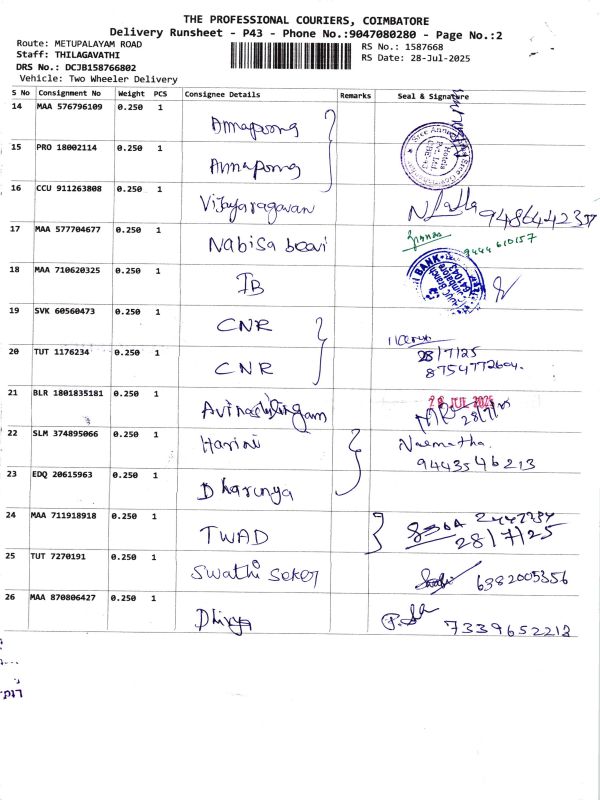 THE PROFESSIONAL COURIERS, COIMBATORE
Delivery Runsheet - P43 - Phone No.:9047080280 - Page No.:2
Route: METUPALAYAM ROAD
Staff: THILAGAVATHI
DRS No.: DCJB158766802
Vehicle: Two Wheeler Delivery
RS No.: 1587668
RS Date: 28-Jul-2025
S No Consignment No Weight PCS Consignee Details Remarks Seal & Signature
14 MAA 576796109 0.250 1
Annapoorna
15 PRO 18002114 0.250 1
Annapoorna
16 CCU 911263808 0.250 1
Vijayaragavan 9486442357
17 MAA 577704677 0.250 1
Nabisa beevi 9444610157
18 MAA 710620325 0.250 1
IB
19 SVK 60560473 0.250 1
CNR
20 TUT 1176234 0.250 1
CNR 28/7/25
8754772604.
21 BLR 1801835181 0.250 1
Avinashilingam 28 JUL 2025
28/7/25
22 SLM 374895066 0.250 1
Harini
23 EDQ 20615963 0.250 1
Dharunya 9443546213
24 MAA 711918918 0.250 1
TWAD 28/7/25
25 TUT 7270191 0.250 1
Swathi Seker 6382005356
26 MAA 870806427 0.250 1
Dhivya 7339652213